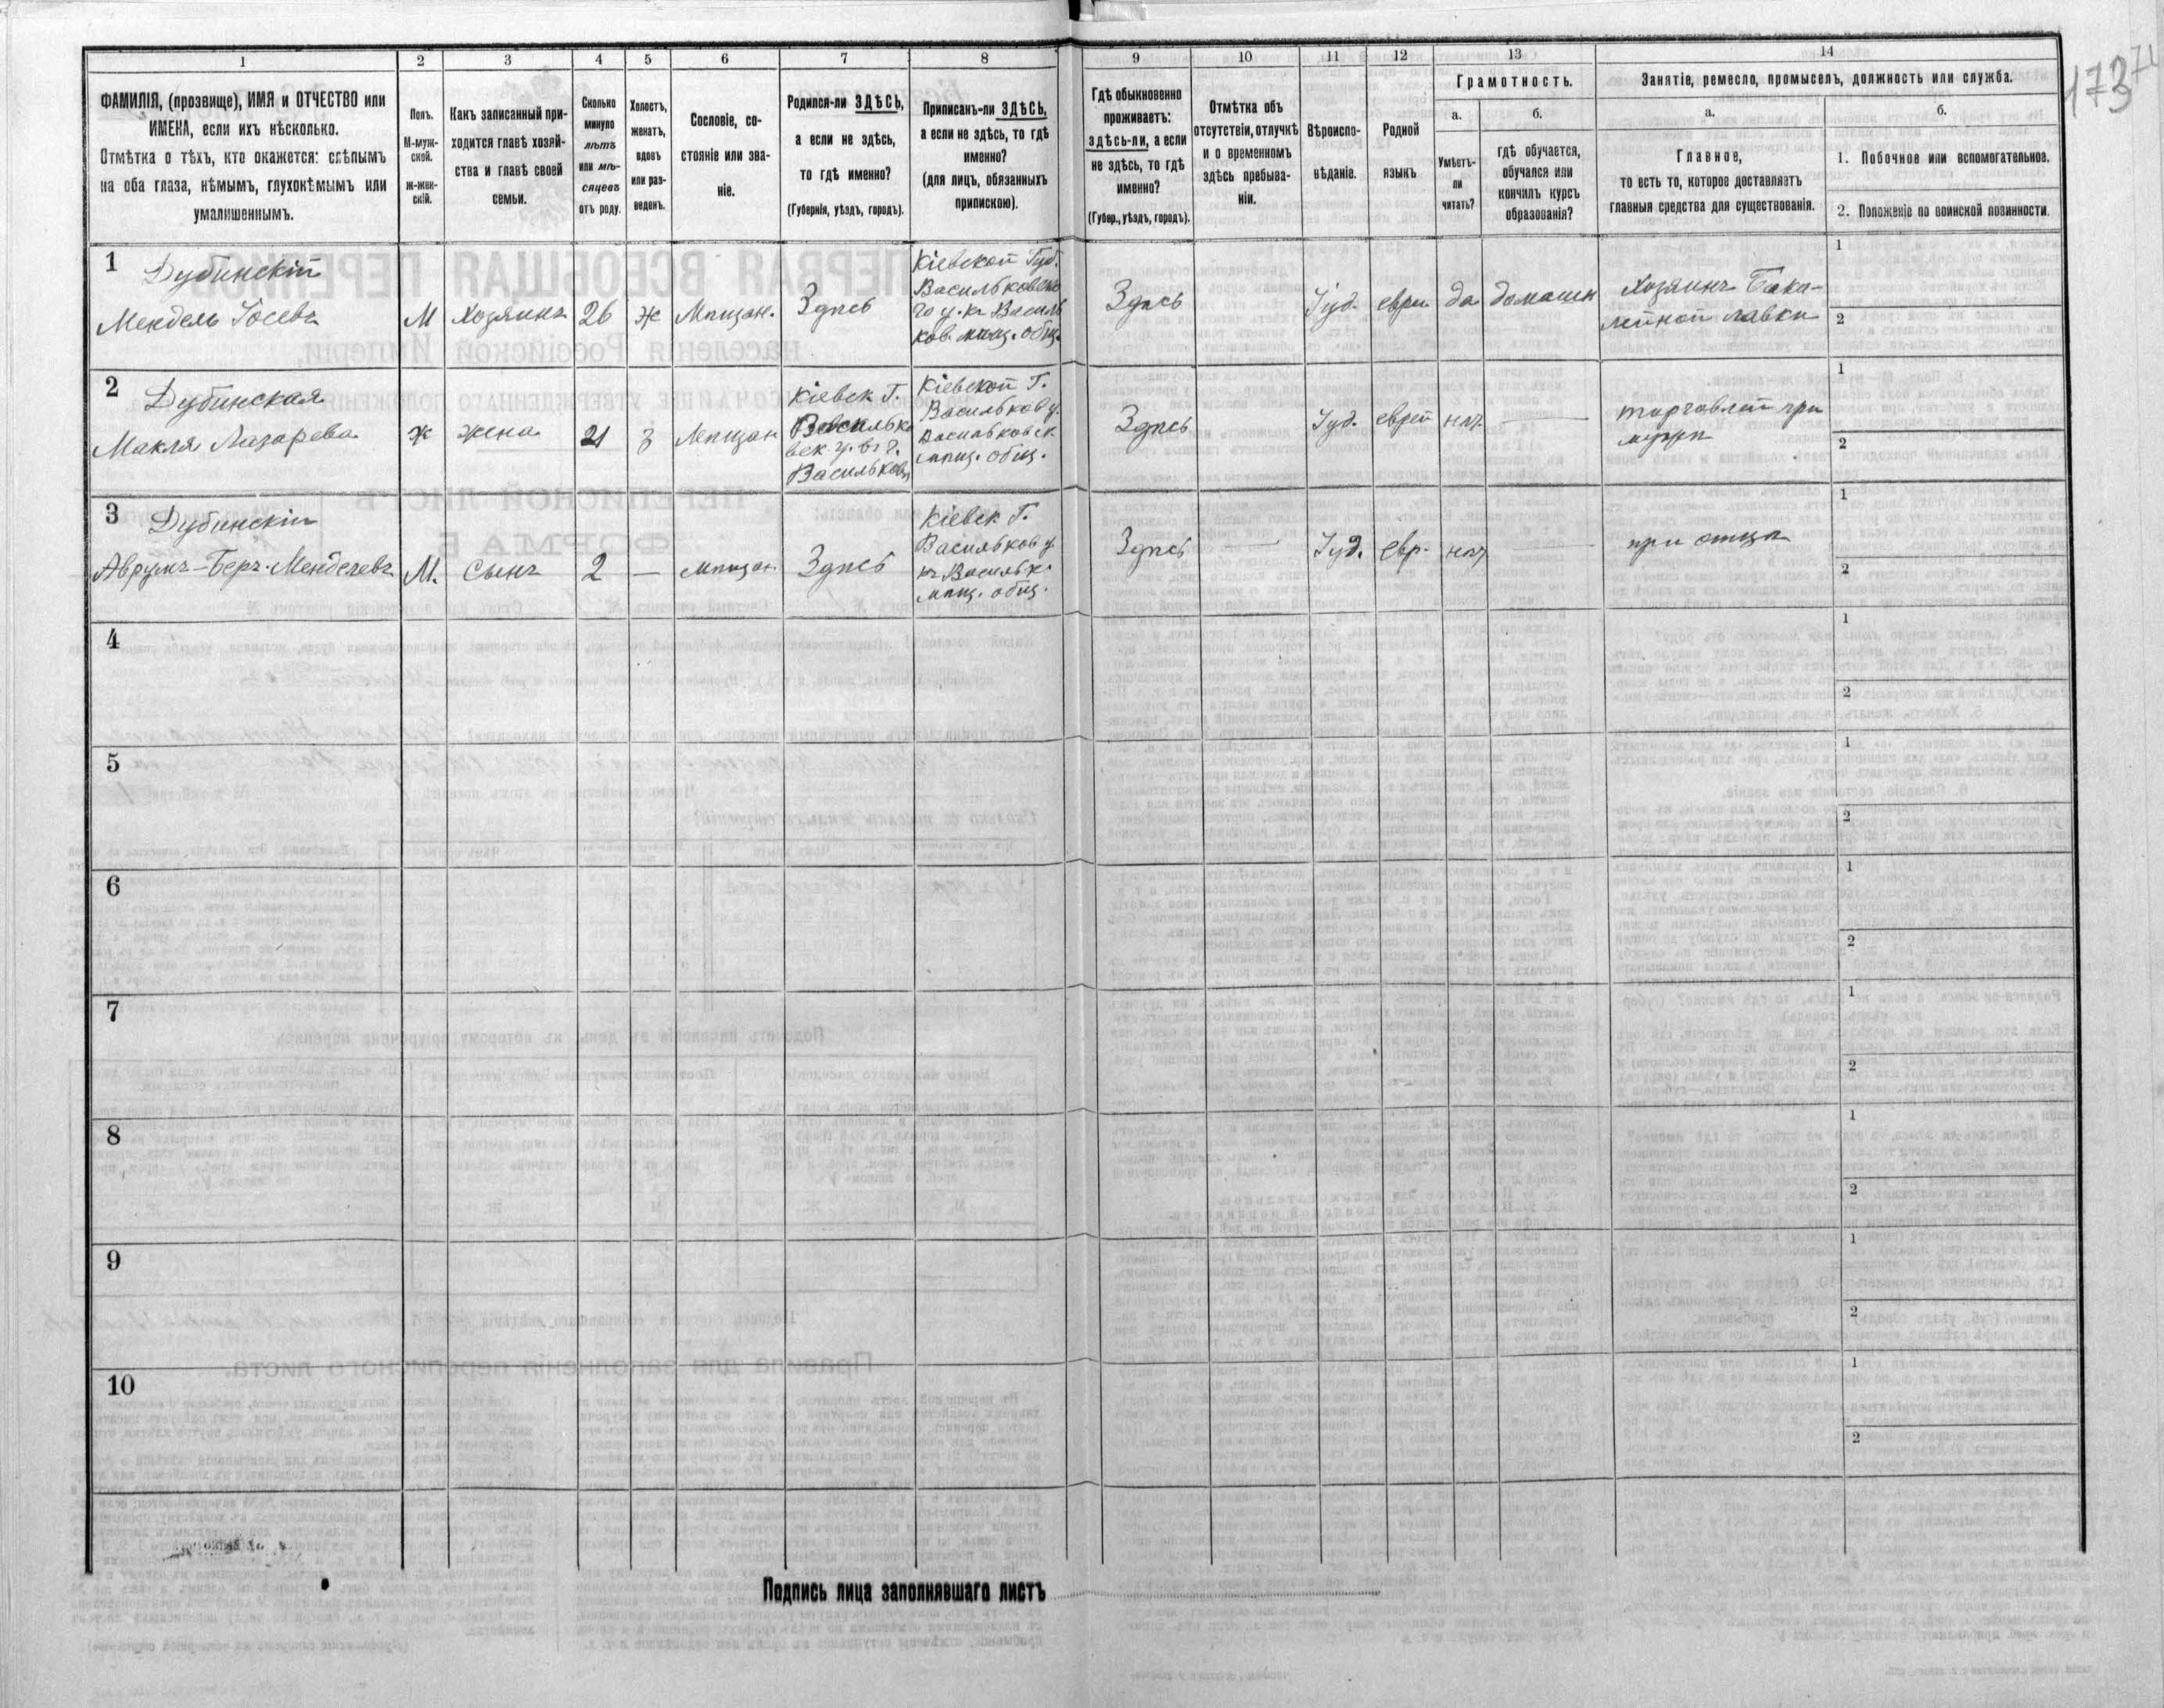 1 2 3 4 5 6 7 8 9 10 11 12 13 14
173
71
ФАМИЛІЯ, (прозвище), ИМЯ и ОТЧЕСТВО или
ИМЕНА, если ихъ нѣсколько.
Отмѣтка о тѣхъ, кто окажется: слѣпымъ
на оба глаза, нѣмымъ, глухонѣмымъ или
умалишеннымъ.
Полъ.
М-муж-
ской.
Ж-жен-
скій.
Какъ записанный при-
ходится главѣ хозяй-
ства и главѣ своей
семьи.
Сколько
минуло
лѣтъ
или мѣ-
сяцевъ
отъ роду.
Холостъ,
женатъ,
вдовъ
или раз-
веденъ.
Сословіе, со-
стояніе или зва-
ніе.
Родился-ли ЗДѢСЬ,
а если не здѣсь,
то гдѣ именно?
(Губернія, уѣздъ, городъ).
Приписанъ-ли ЗДѢСЬ,
а если не здѣсь, то гдѣ
именно?
(для лицъ, обязанныхъ
припискою).
Гдѣ обыкновенно
проживаетъ:
здѣсь-ли, а если
не здѣсь, то гдѣ
именно?
(Губер., уѣздъ, городъ).
Отмѣтка объ
отсутствіи, отлучкѣ
и о временномъ
здѣсь пребыва-
ніи.
Вѣроиспо-
вѣданіе.
Родной
языкъ
Грамотность.
а.
Умѣетъ-
ли
читать?
б.
гдѣ обучается,
обучался или
кончилъ курсъ
образованія?
Занятіе, ремесло, промыселъ, должность или служба.
а.
Главное,
то есть то, которое доставляетъ
главныя средства для существованія.
б.
1. Побочное или вспомогательное.
2. Положеніе по воинской повинности.
1
Дубинскій
Мендель Іосевъ
М
Хозяинъ
26
Ж
Мѣщан.
Здѣсь
Кіевской Губ.
Васильковска
го у. къ Василь
ков. мѣщ. общ.
Здѣсь
Іуд.
евре
да
домашн
Хозяинъ Бака-
лейной лавки
1
2
2
Дубинская
Макля Лазарева
Ж
жена
21
З
Мѣщан
Кіевск Г.
Василько
вск. у. въ г.
Васильковѣ
Кіевской Г.
Васильков у.
Васильковск
мѣщ. общ.
Здѣсь
Іуд.
еврей
нѣт.
торговлей при
мужѣ
1
2
3
Дубинскій
Аврумъ-Беръ Менделевъ
М.
сынъ
2
—
мѣщан
Здѣсь
Кіевск Г.
Васильков у.
къ Васильк.
мѣщ. общ.
Здѣсь
—
Іуд.
евр.
нѣт
при отцѣ
1
2
4
1
2
5
1
2
6
1
2
7
1
2
8
1
2
9
1
2
10
1
2
Подпись лица заполнявшаго листъ